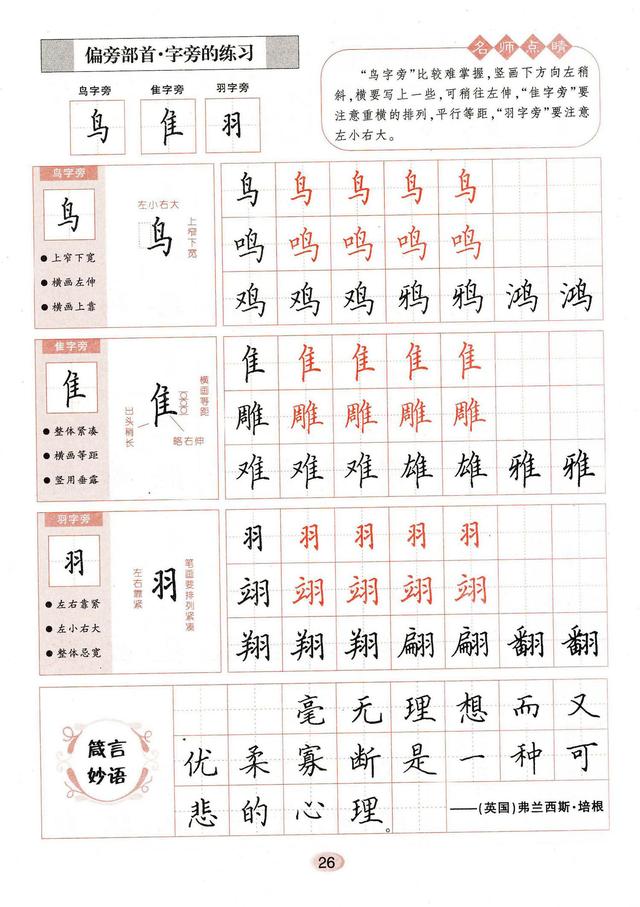 偏旁部首·字旁的练习
名师点睛
“鸟字旁”比较难掌握,竖画下方向左稍
斜,横要写上一些,可稍往左伸,“隹字旁”要
注意重横的排列,平行等距,“羽字旁”要注意
左小右大。
鸟字旁 隹字旁 羽字旁
鸟 隹 羽
鸟字旁
鸟
●上窄下宽
●横画左伸
●横画上靠
左小右大
鸟
上窄下宽
鸟 鸟 鸟 鸟 鸟
鸣 鸣 鸣 鸣 鸣
鸡 鸡 鸡 鸦 鸦 鸿 鸿
隹字旁
隹
●整体紧凑
●横画等距
●竖用垂露
隹
横画等距
长稍突出
略右伸
隹 隹 隹 隹 隹
雕 雕 雕 雕 雕
难 难 难 雄 雄 雅 雅
羽字旁
羽
●左右靠紧
●左小右大
●整体忌宽
左右靠紧
羽
笔画要排列紧凑
羽 羽 羽 羽 羽
翊 翊 翊 翊 翊
翔 翔 翔 翩 翩 翻 翻
箴言
妙语
毫无理想而又
优柔寡断是一种可
悲的心理。
——(英国)弗兰西斯·培根
26